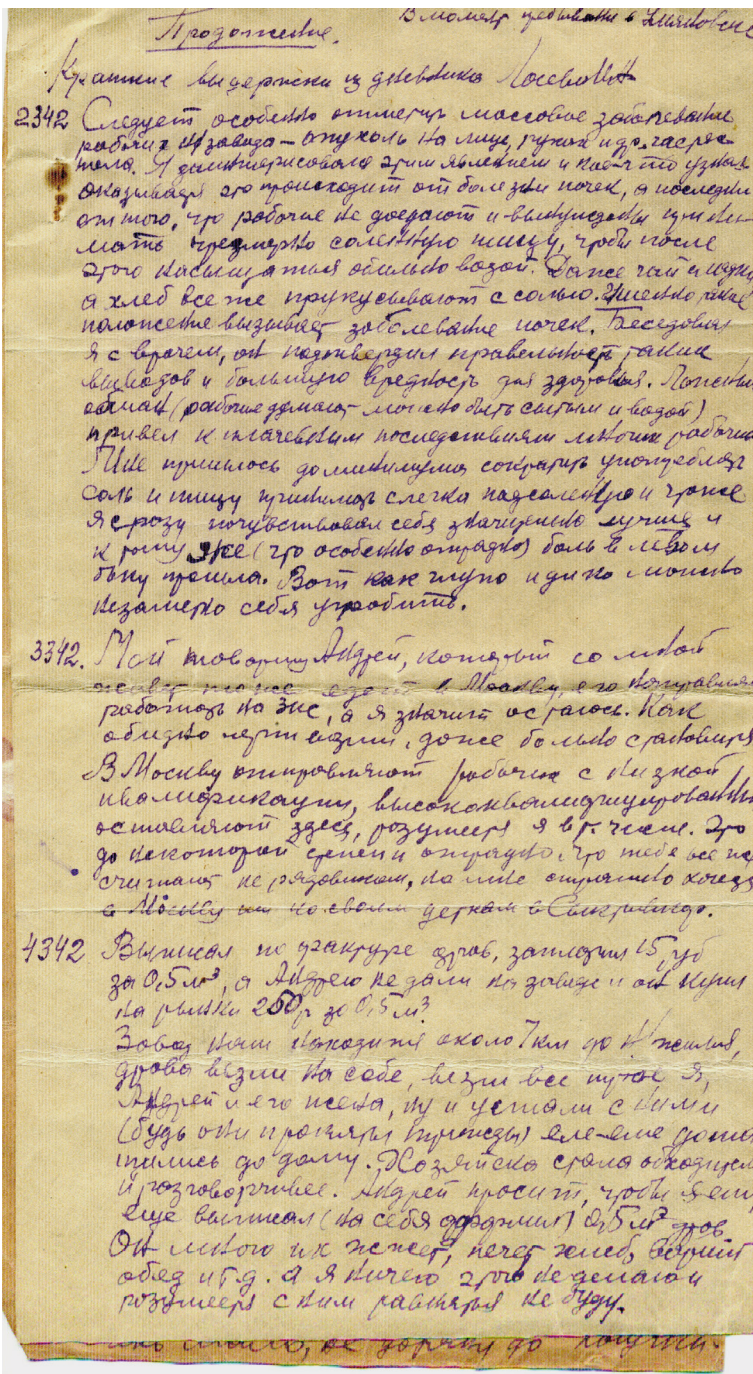 В момент пребывания в Ульяновске
Продолжение.
Краткие выдержки из дневника Лосева
2342 Следует особенно отметить массовое заболевание
рабочих н/завода – опухоль на лице, руках и др. частях
тела. Я заинтересовался этим явлением и кое-что узнал
оказывается это происходит от болезни почек, а последняя
от того, что рабочие не доедают и вынуждены прини-
мать чрезмерно соленную пищу, чтобы после
этого насыщаться обильно водой. Даже чай и
а хлеб все же прикусывают с солью. Именно такие
положение вызывает заболевание почек. Беседовал
я с врачем, он подтвердил правельность таких
выводов и большую вредность для здоровья.
обман (рабочие думают можно быть сытым и водой)
привел к плачевным последствиям многих рабочих
Мне пришлось до минимума сократить употреблять
соль и пищу принимать слегка подсоленную и тоже
я сразу почувствовал себя значительно лучше и
к тому же (что особенно отрадно) боль в левом
боку прошла. Вот как глупо и дико можно
незаметно себя угробить.
3342. Мой товарищ Андрей, который со мной
живет тоже едет в Москву, его направляют
работать на Зис, а я значит остаюсь. Как
обидно черти взяли, даже больно становится
В Москву отправляют рабочих с низкой
квалификации, высококвалифицированных
оставляют здесь, разумеется я в т. числе. Это
до некоторой степени отрадно, что тебя все же
считают не рядовиком, но мне отрадно хочется
в Москву или ко своим деткам в
4342 Выписал по фактуре дров, заплатил 15 руб
за 0,5 м³, а Андрею не дали на заводе и он купил
на рынки 250 р за 0,5 м³
Завод наш находится около 7 км до н/жилья,
дрова везли на себе, везли все трое, я,
Андрей и его жена, ну и устали с ними
(будь они прокляты трижды) еле-еле дота
щились до дому. Хозяйска стала обходител
и разговорчивее. Андрей просит, чтобы я ему
еще выписал (на себя) 0,5 м³ дров
Он много их жжет, печет хлеб, варит
обед и т.д. а я ничего этого не делаю и
разумеется с ним равняться не буду.